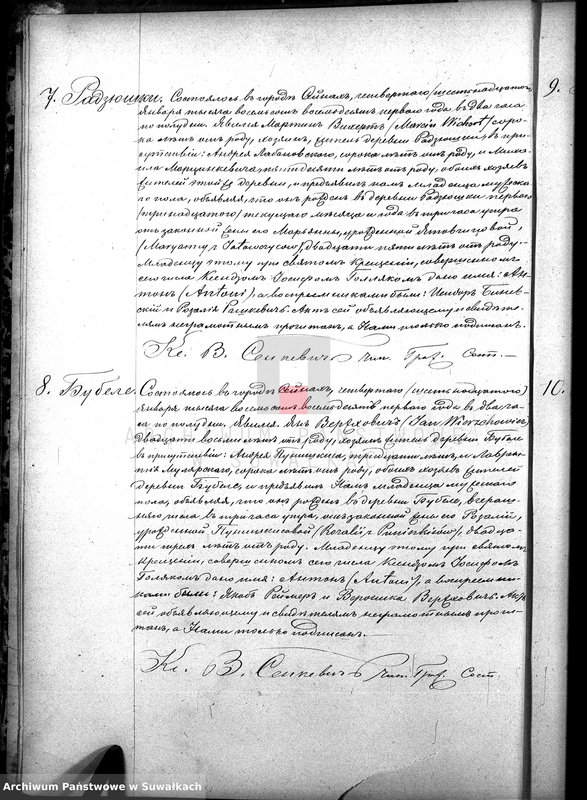 7. Радзюшки. Состоялось въ городѣ Сейнахъ, четвертаго /шестнадцатаго/
Января тысяча восемьсотъ восемьдесятъ перваго года въ два часа
по полудни. Явился Мартинъ Вихертъ /Marcin Wichert/ соро-
ка лѣтъ отъ роду, хозяинъ, житель деревни Радзюшки въ при-
сутствіи: Андрея сорока лѣтъ отъ роду, и Миха-
ила Марцинкевича, пятидесяти лѣтъ отъ роду, обоихъ хозяевъ
жителей этой же деревни, и предъявилъ намъ младенца мужеска-
го пола, объявляя, что онъ рожденъ въ деревни Радзюшки перваго
/тринадцатаго/ текущаго мѣсяца и года въ три часа утра
отъ законной жены его Марьянны, урожденной
/Maryanny z двадцати пяти лѣтъ отъ роду.
Младенцу этому при святомъ Крещеніи, совершенномъ
сего числа Ксендзомъ Іосифомъ Голлякомъ дано имя: Ан-
тонъ /Antoni/, а воспріемниками были: Исидоръ
и Розалія Актъ сей объявляющему и свидѣте-
лямъ неграмотнымъ прочитанъ, а Нами только подписанъ.
Кс. В. Сенкевичъ Чин. Граж. Сост.
8. Бубеле. Состоялось въ городѣ Сейнахъ, четвертаго /шестнадцатаго/
Января тысяча восемьсотъ восемьдесятъ перваго года въ два ча-
са по полудни. Явился Янъ Вержховичъ /Jan Wierzchowicz/
двадцати восьми лѣтъ отъ роду, хозяинъ житель деревни Бубеле
въ присутствіи: Андрея тридцати лѣтъ, и Лаврен-
тія Мулярскаго, сорока лѣтъ отъ роду, обоихъ хозяевъ жителей
деревни Бубеле, и предъявилъ Намъ младенца мужескаго
пола, объявляя, что онъ рожденъ въ деревни Бубеле, вчераш-
няго числа въ три часа утра, отъ законной жены его Розаліи,
урожденной /Rozalii z двадца-
ти трехъ лѣтъ отъ роду. Младенцу этому при святомъ
крещеніи, совершенномъ сего числа Ксендзомъ Іосифомъ
Голякомъ дано имя: Антонъ /Antoni/, а воспріемни-
ками были: Яковъ Реймеръ и Вероника Вержховичъ. Актъ
сей объявляющему и свидѣтелямъ неграмотнымъ прочи-
танъ, а Нами только подписанъ.
Кс. В. Сенкевичъ Чин. Граж. Сост.
9.
10.
Archiwum Państwowe w Suwałkach